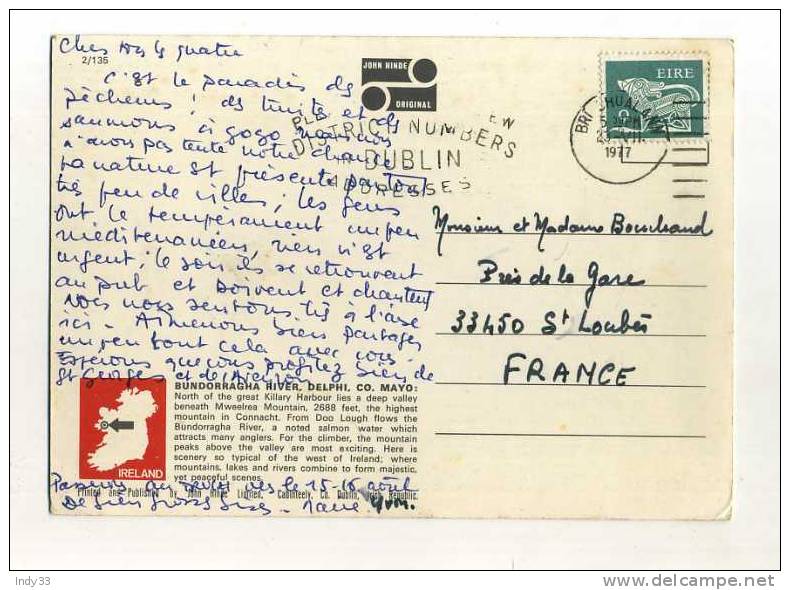 Chers vous quatre
2/135
C'est le paradis des
pêcheurs ! des truites et des
saumons à gogo mais nous
n'avons pas tenté notre chance
la nature est présente partout
très peu de villes ; les gens
ont le tempérament un peu
méditerranéen, rien n'est
urgent ; le soir ils se retrouvent
au pub et boivent et chantent
Nous nous sentons très à l'aise
ici - Aimerions bien partager
un peu tout cela avec vous.
Espérons que vous profitez bien de
St Georges et de
JOHN HINDE
ORIGINAL
DISTRICT NUMBERS
DUBLIN
ADDRESSES
EIRE
1977
Monsieur et Madame Bouchaud
Près de la Gare
33450 St Loubès
FRANCE
BUNDORRAGHA RIVER, DELPHI, CO. MAYO:
North of the great Killary Harbour lies a deep valley
beneath Mweelrea Mountain, 2688 feet, the highest
mountain in Connacht. From Doo Lough flows the
Bundorragha River, a noted salmon water which
attracts many anglers. For the climber, the mountain
peaks above the valley are most exciting. Here is
scenery so typical of the west of Ireland; where
mountains, lakes and rivers combine to form majestic,
yet peaceful scenes.
IRELAND
Printed and Published by John Hinde Limited, Cabinteely, Co. Dublin, Irish Republic.
vers le 15-16 août
De bien grosses bises - Yvon.
Indy33
www.delcampe.net